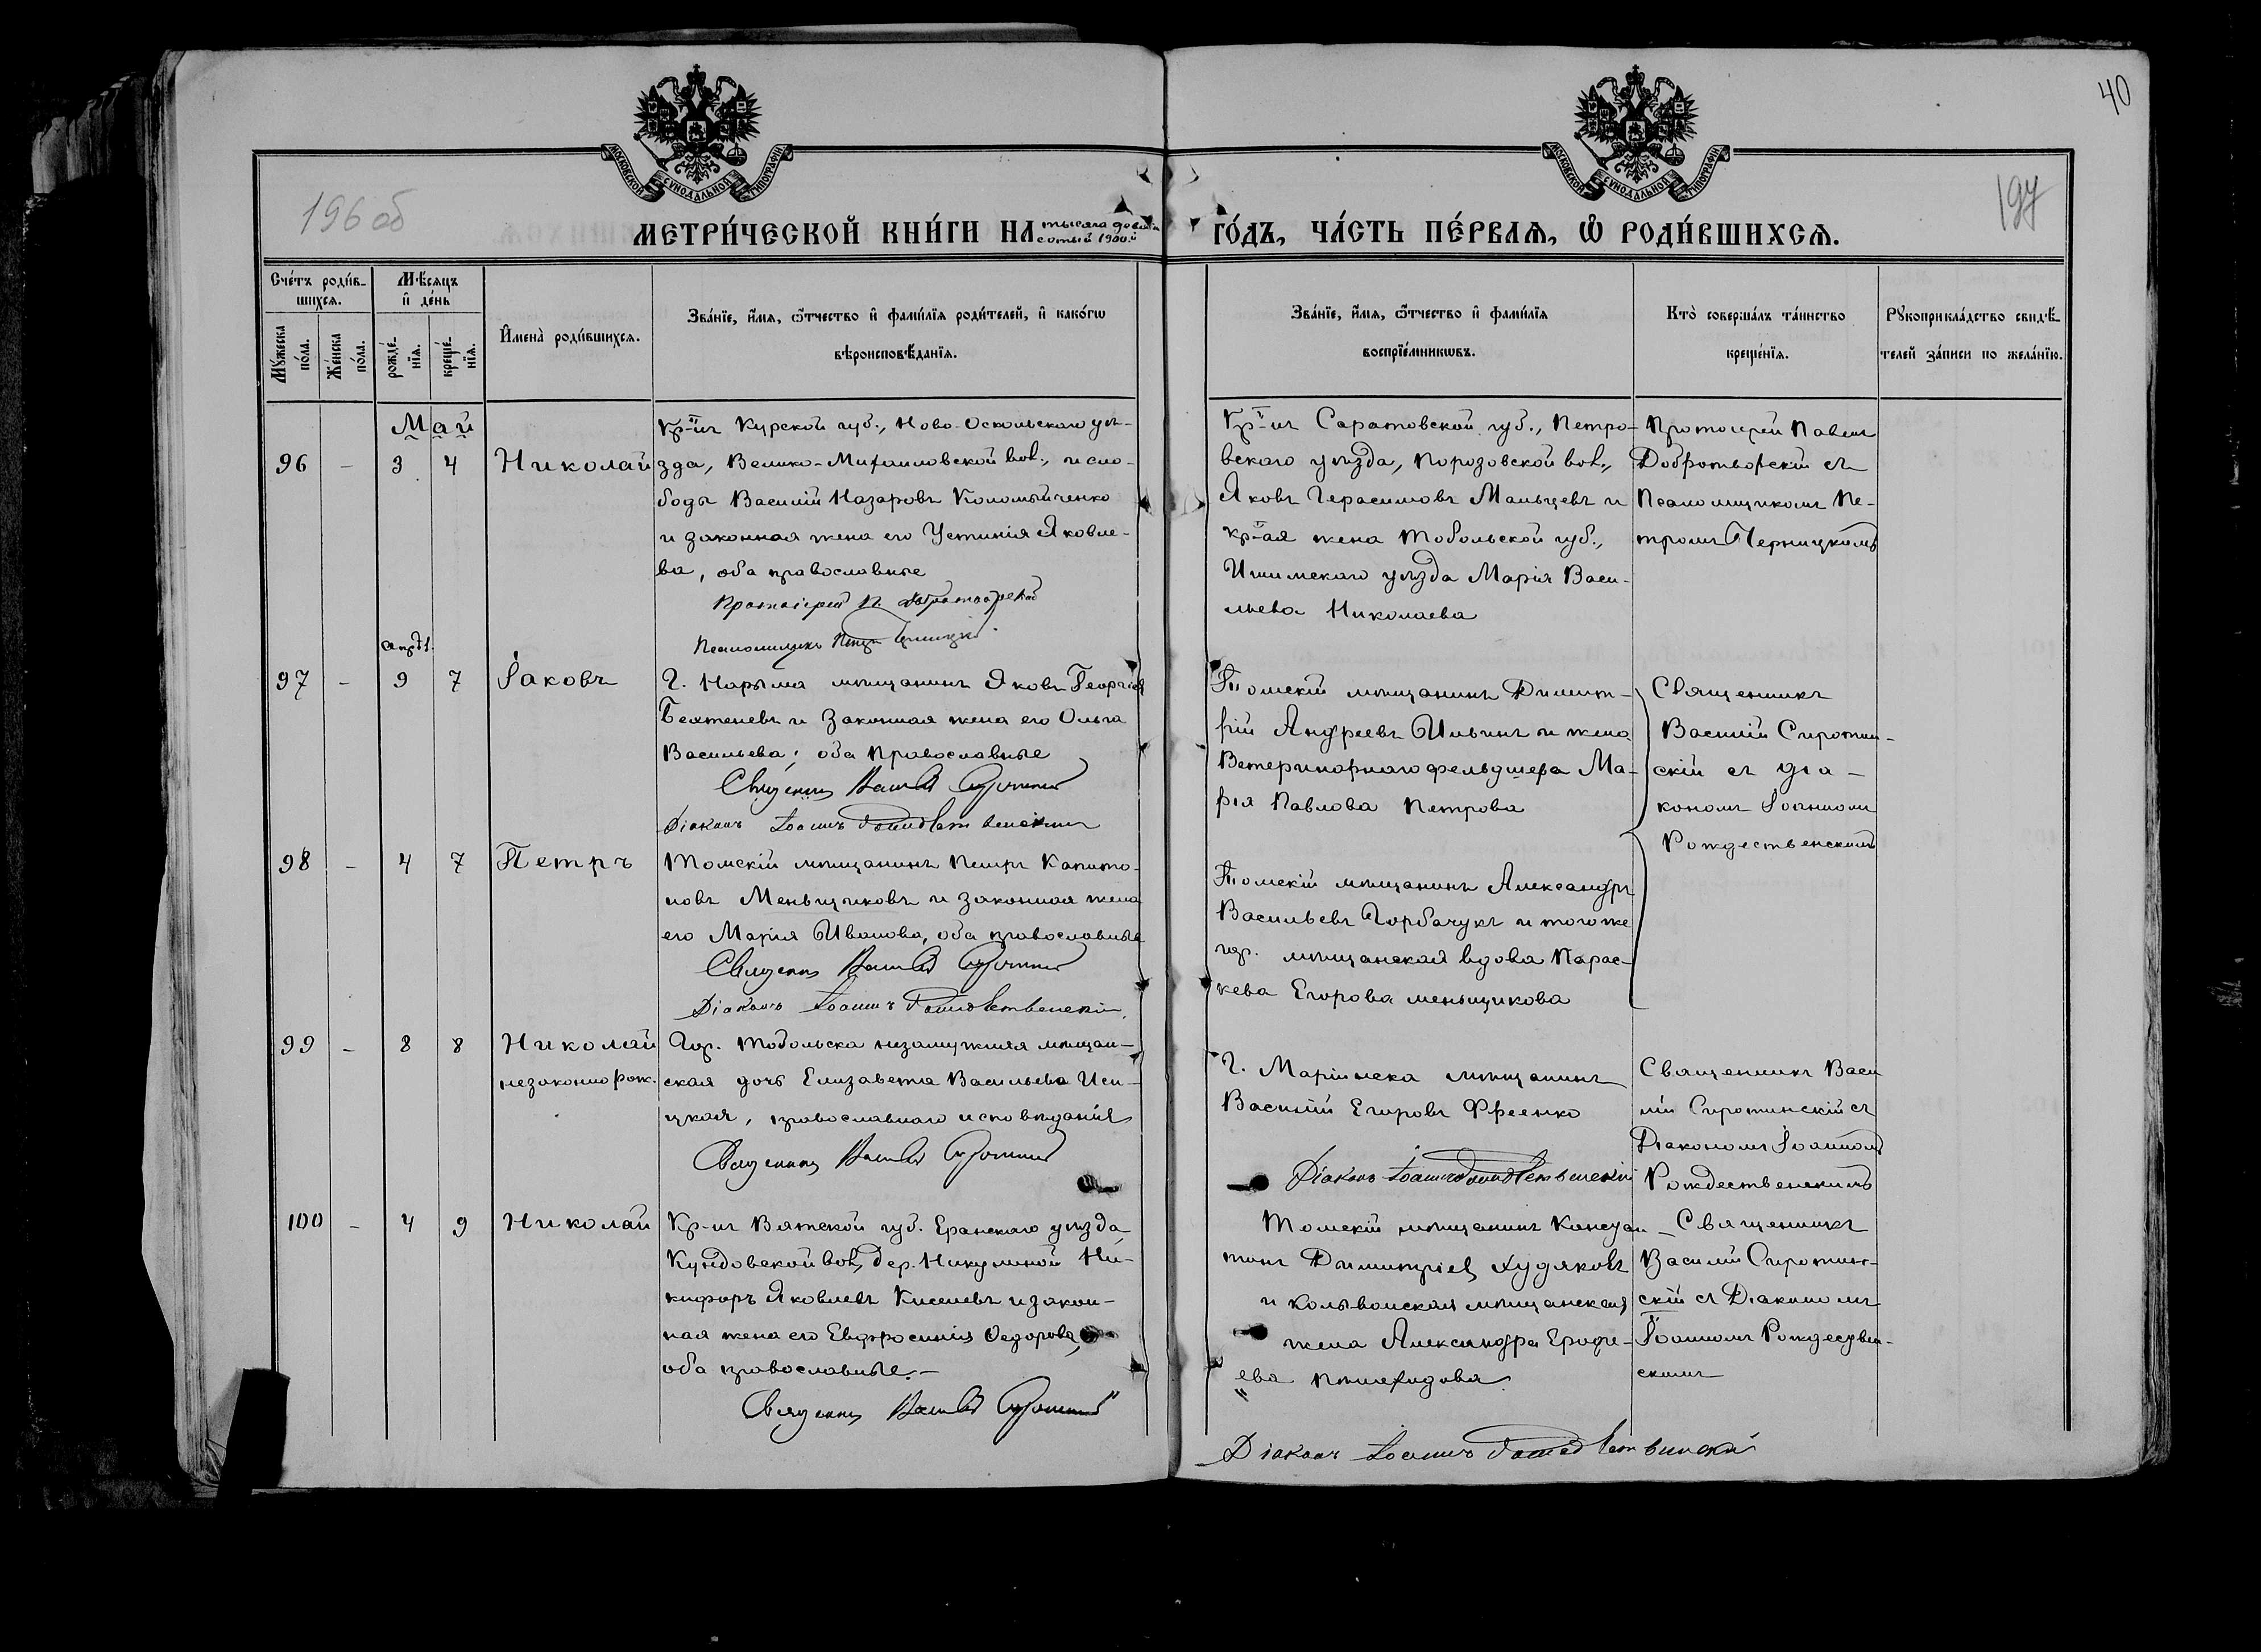 40
МОСКОВСКОЙ СѴНОДАЛЬНОЙ ТИПОГРАФІИ
МОСКОВСКОЙ СѴНОДАЛЬНОЙ ТИПОГРАФІИ
196 об
197
МЕТРИ́ЧЕСКОЙ КНИ́ГИ НА тысяча девять
сотый 1900й
ГО́ДЪ, ЧА́СТЬ ПЕ́РВАЯ, Ѽ РОДИ́ВШИХСЯ.
Сче́тъ роди́в-
шихся.
Мѣ́сяцъ
и҆ де́нь
Му́жеска
по́ла.
Же́нска
по́ла.
рожде́-
нїя.
креще́-
нїя.
И҆мена̀ роди́вшихся.
Зва́нїе, и҆́мя, ѻ҆́тчество и҆ фами́лїя роди́телей, и҆ како́гѡ
вѣроисповѣ́данїя.
Зва́нїе, и҆́мя, ѻ҆́тчество и҆ фами́лїя
воспрїе́мникѡвъ.
Кто̀ соверша́лъ та́инство
креще́нїя.
Рꙋкоприкла́дство свидѣ́-
телей за́писи по жела́нїю.
Май
96 - 3 4 Николай
Кр-нъ Курской губ., Ново-Оскольскаго уѣ-
зда, Велико-Михаиловской вол., и сло-
боды Василій Назаровъ Коломыйченко
и законная жена его Устинія Яковле-
ва, оба православные
Протоіерей П. Добротворскій
Псаломщикъ Петръ
Кр-нъ Саратовской губ., Петро-
вскаго уѣзда, Порозовской вол.,
Яковъ Герасимовъ Мальцевъ и
кр-ая жена Тобольской губ.,
Ишимскаго уѣзда Марія Васи-
льева Николаева
Протоіерей Павелъ
Добротворскій съ
Псаломщикомъ Пе-
тромъ
апрѣл.
97 - 9 7 Іаковъ
Г. Нарыма мѣщанинъ Яковъ Георгіев
и законная жена его Ольга
Васильева; оба православные
Священникъ Василій Сиротинскій
Діаконъ Іоаннъ Рождественскій
Томскій мѣщанинъ Димит-
рій Андреевъ Ильинъ и жена
Ветеринарнаго фельдшера Ма-
рія Павлова Петрова
Священникъ
Василій Сиротин-
скій съ діа-
кономъ Іоанномъ
Рождественскимъ
98 - 4 7 Петръ
Томскій мѣщанинъ Петръ Капито-
новъ Меньщиковъ и законная жена
его Марія Иванова, оба православные
Священникъ Василій Сиротинскій
Діаконъ Іоаннъ Рождественскій.
Томскій мѣщанинъ Александръ
Васильевъ Горбачукъ и того же
гор. мѣщанская вдова Парас-
кева Егорова меньщикова
99 - 8 8 Николай
незаконно рож.
Гор. Тобольска незамужняя мѣщан-
ская дочь Елизавета Васильева
православнаго исповѣданія
Священникъ Василій Сиротинскій
Г. Маріинска мѣщанинъ
Василій Егоровъ
Діаконъ Іоаннъ Рождественскій
Священникъ Васи
лій Сиротинскій съ
Діакономъ Іоанномъ
Рождественскимъ
100 - 4 9 Николай
Кр-нъ Вятской губ. Еранскаго уѣзда
вол, дер. Никулиной Ни-
кифоръ Яковлевъ Киселевъ и закон-
ная жена его Евфросинія Ѳедорова,
оба православные.-
Священникъ Василій Сиротинскій
Томскій мѣщанинъ Констан-
тинъ Димитріев Худяковъ
и Колыванская мѣщанская
жена Александра Ерофе-
ева
Священникъ
Василій Сиротин-
скій съ Діакономъ
Іоанномъ Рождествен-
скимъ
Діаконъ Іоаннъ Рождественскій